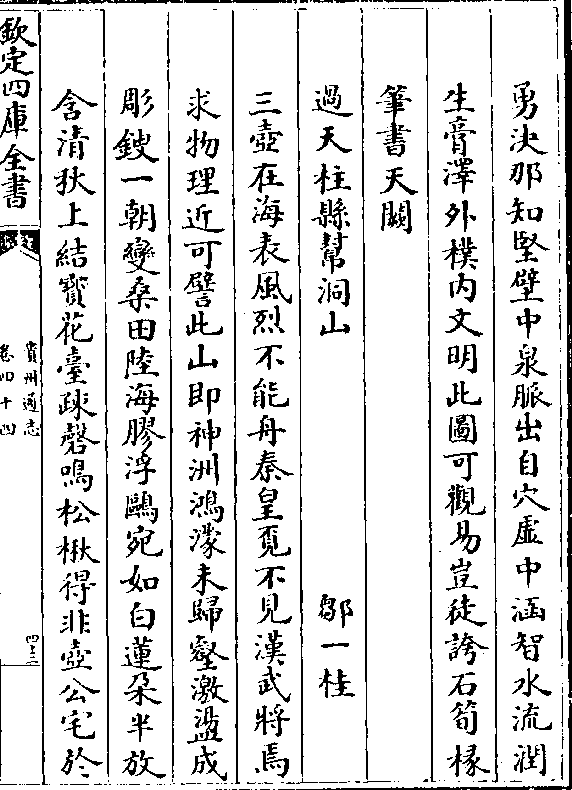 勇決那知堅壁中泉脈出自穴虛中涵智水流潤
生膏澤外樸內文明此圖可觀易豈徒誇石筍椽
筆書天闕
過天柱縣幫洞山　鄒一桂
三壺在海表風烈不能舟秦皇覓不見漢武將焉
求物理近可譬此山即神洲鴻濛未歸壑激盪成
彫鎪一朝變桑田陸海膠浮鷗宛如白蓮朶半放
含清秋上結寶花臺疎磬鳴松楸得非壺公宅於
欽定四庫全書
貴州通志
卷四十四